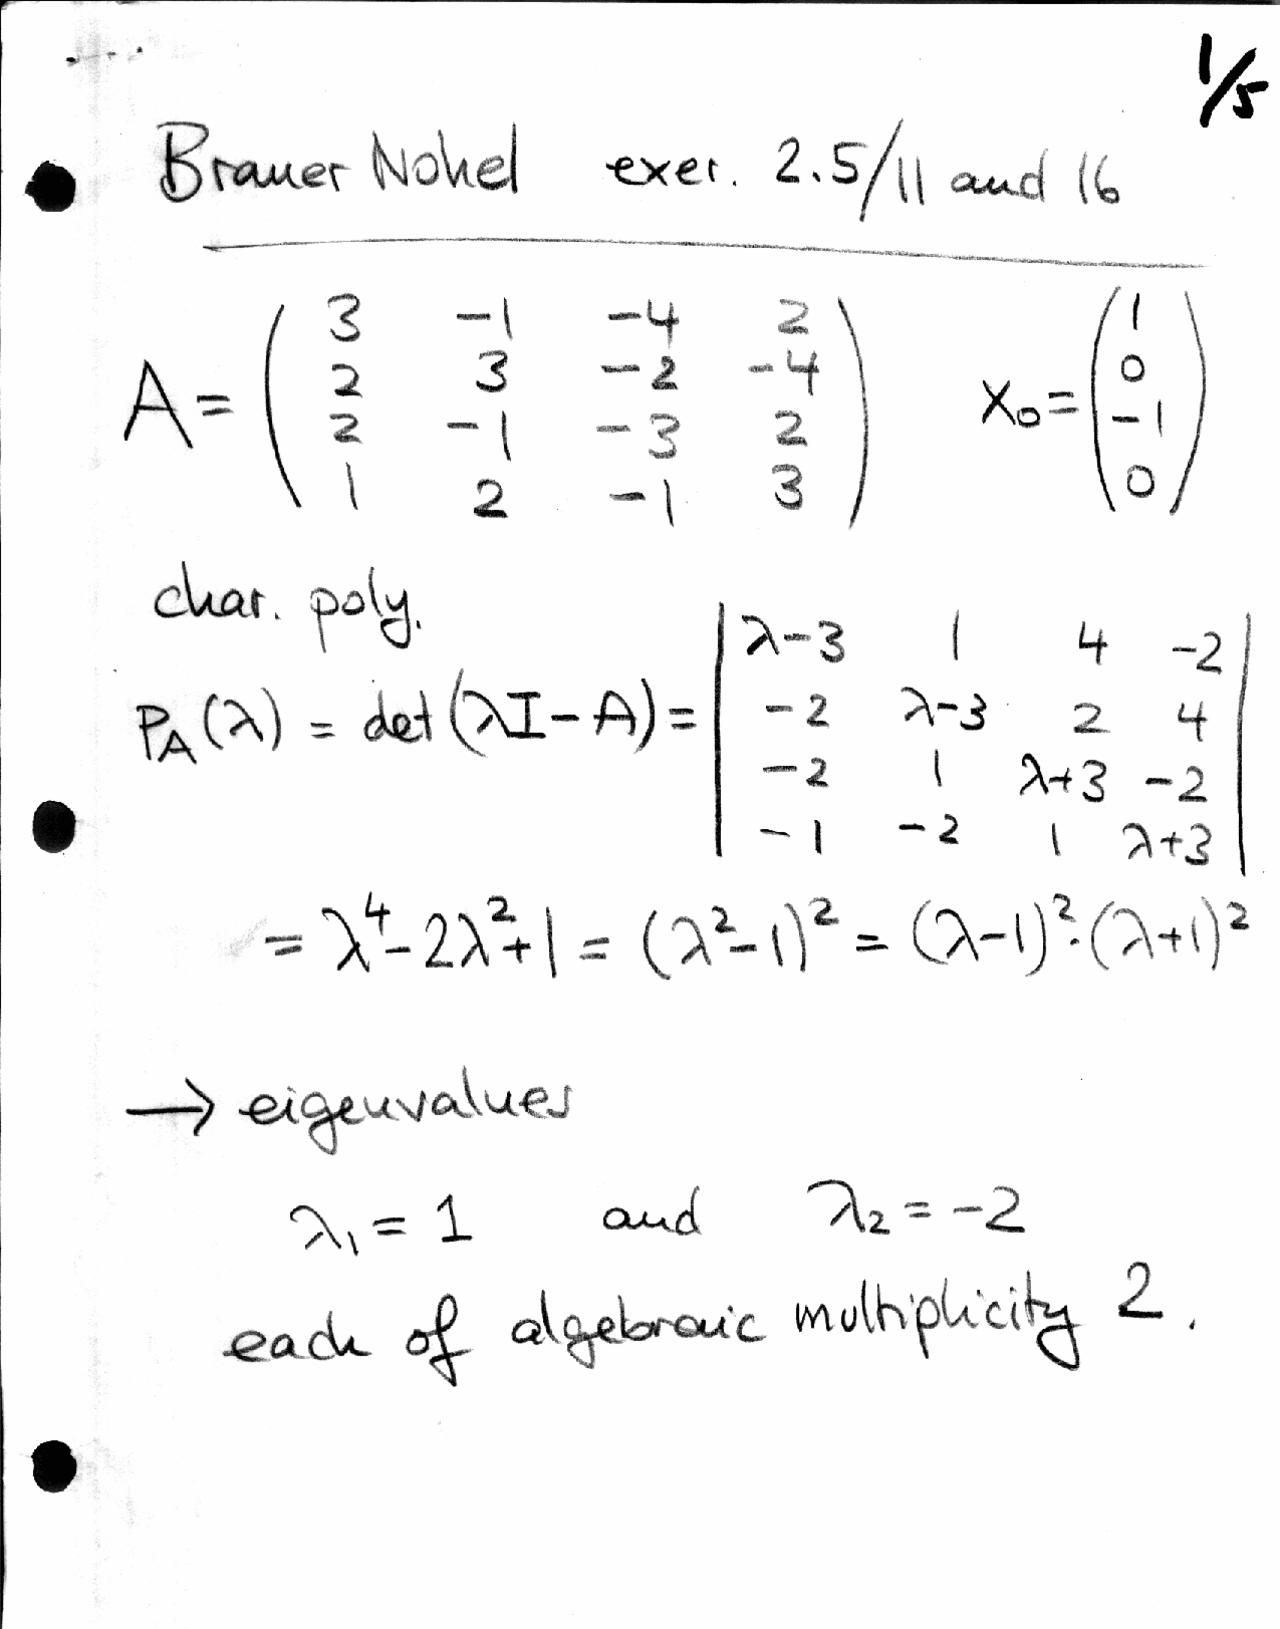 1/5
Brauer Nohel exer. 2.5/11 and 16
A = ( 3 -1 -4 2
2 3 -2 -4
2 -1 -3 2
1 2 -1 3 ) x₀ = ( 1
0
-1
0 )
char. poly.
P_A(λ) = det(λI-A) = | λ-3 1 4 -2
-2 λ-3 2 4
-2 1 λ+3 -2
-1 -2 1 λ+3 |
= λ⁴-2λ²+1 = (λ²-1)² = (λ-1)²·(λ+1)²
→ eigenvalues
λ₁ = 1 and λ₂ = -2
each of algebraic multiplicity 2.